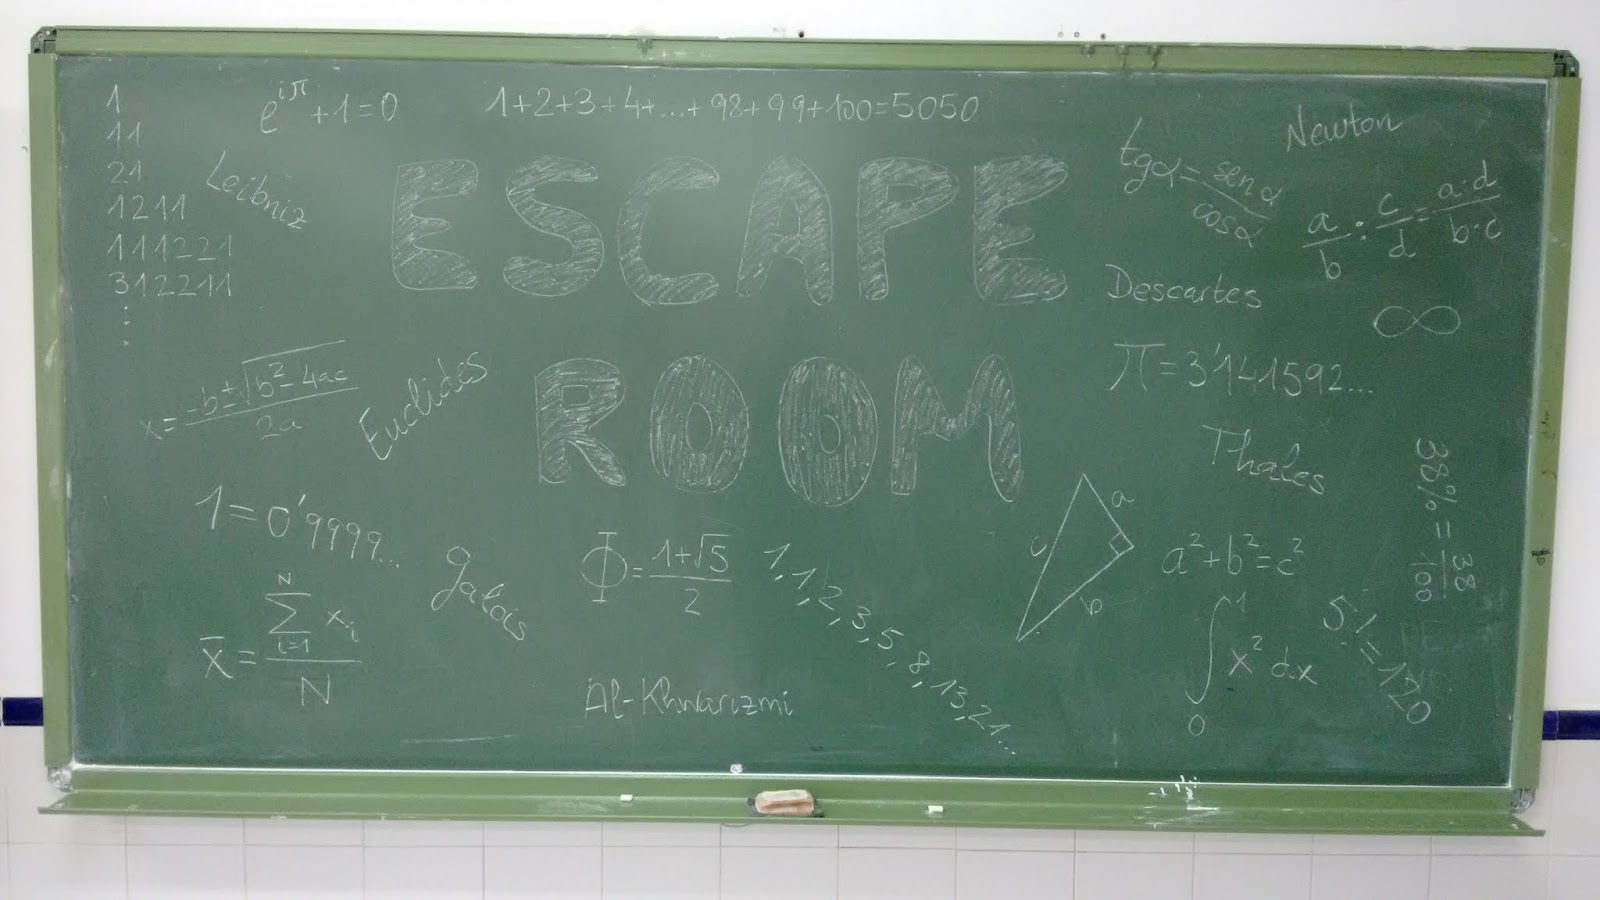 1
11
21
1211
111221
312211
⋮
e^{iπ}+1=0
1+2+3+4+...+98+99+100=5050
Leibniz
ESCAPE
ROOM
Newton
tgα=senα/cosα
a/b:c/d=a·d/b·c
Descartes
∞
π=3'141592...
x=-b±√b²-4ac/2a
Euclides
Thales
38%=38/100
1=0'9999...
Galois
Φ=1+√5/2
1,1,2,3,5,8,13,21...
a
b
c
a²+b²=c²
x̄=∑_{i=1}^{N} x_i/N
Al-Khwarizmi
∫_0^1 x² dx
5!=120